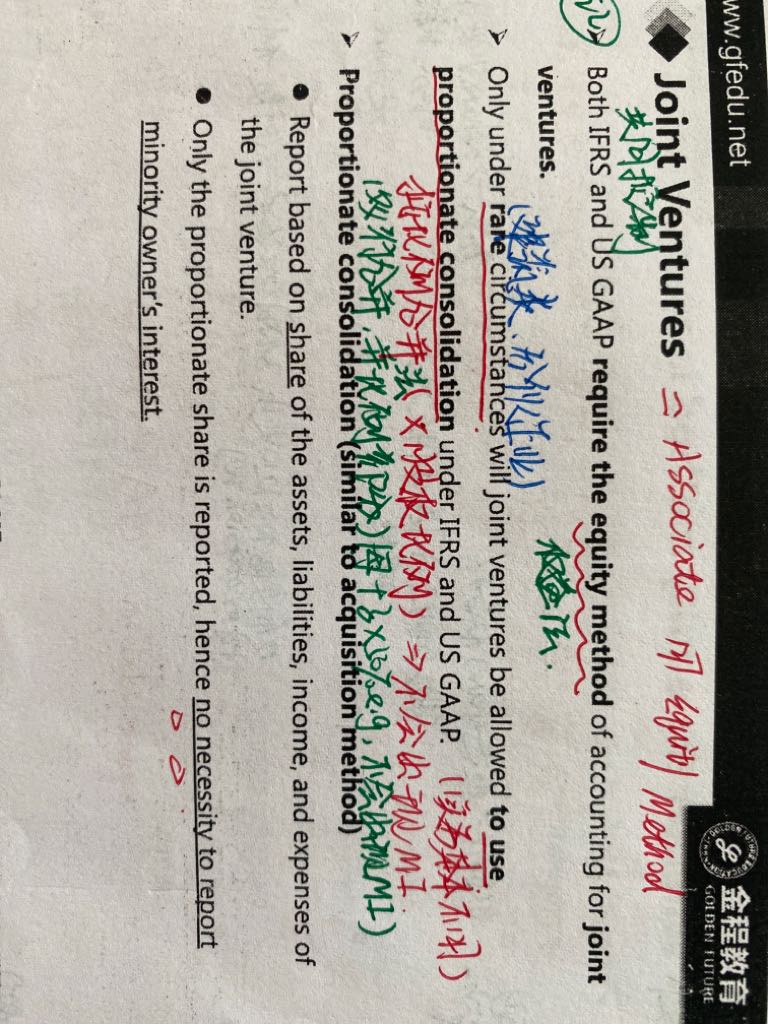 www.gfedu.net
金程教育
GOLDEN FUTURE
Joint Ventures = Associate 用 Equity Method
共同控制
Both IFRS and US GAAP require the equity method of accounting for joint
ventures.
权益法.
Only under rare circumstances will joint ventures be allowed to use
proportionate consolidation under IFRS and US GAAP. (实务基本不用)
按比例合并法 (× 吸收比例) ⇒ 不会出现 MI.
Proportionate consolidation (similar to acquisition method)
不会出现MI)
Report based on share of the assets, liabilities, income, and expenses of
the joint venture.
Only the proportionate share is reported, hence no necessity to report
minority owner's interest.